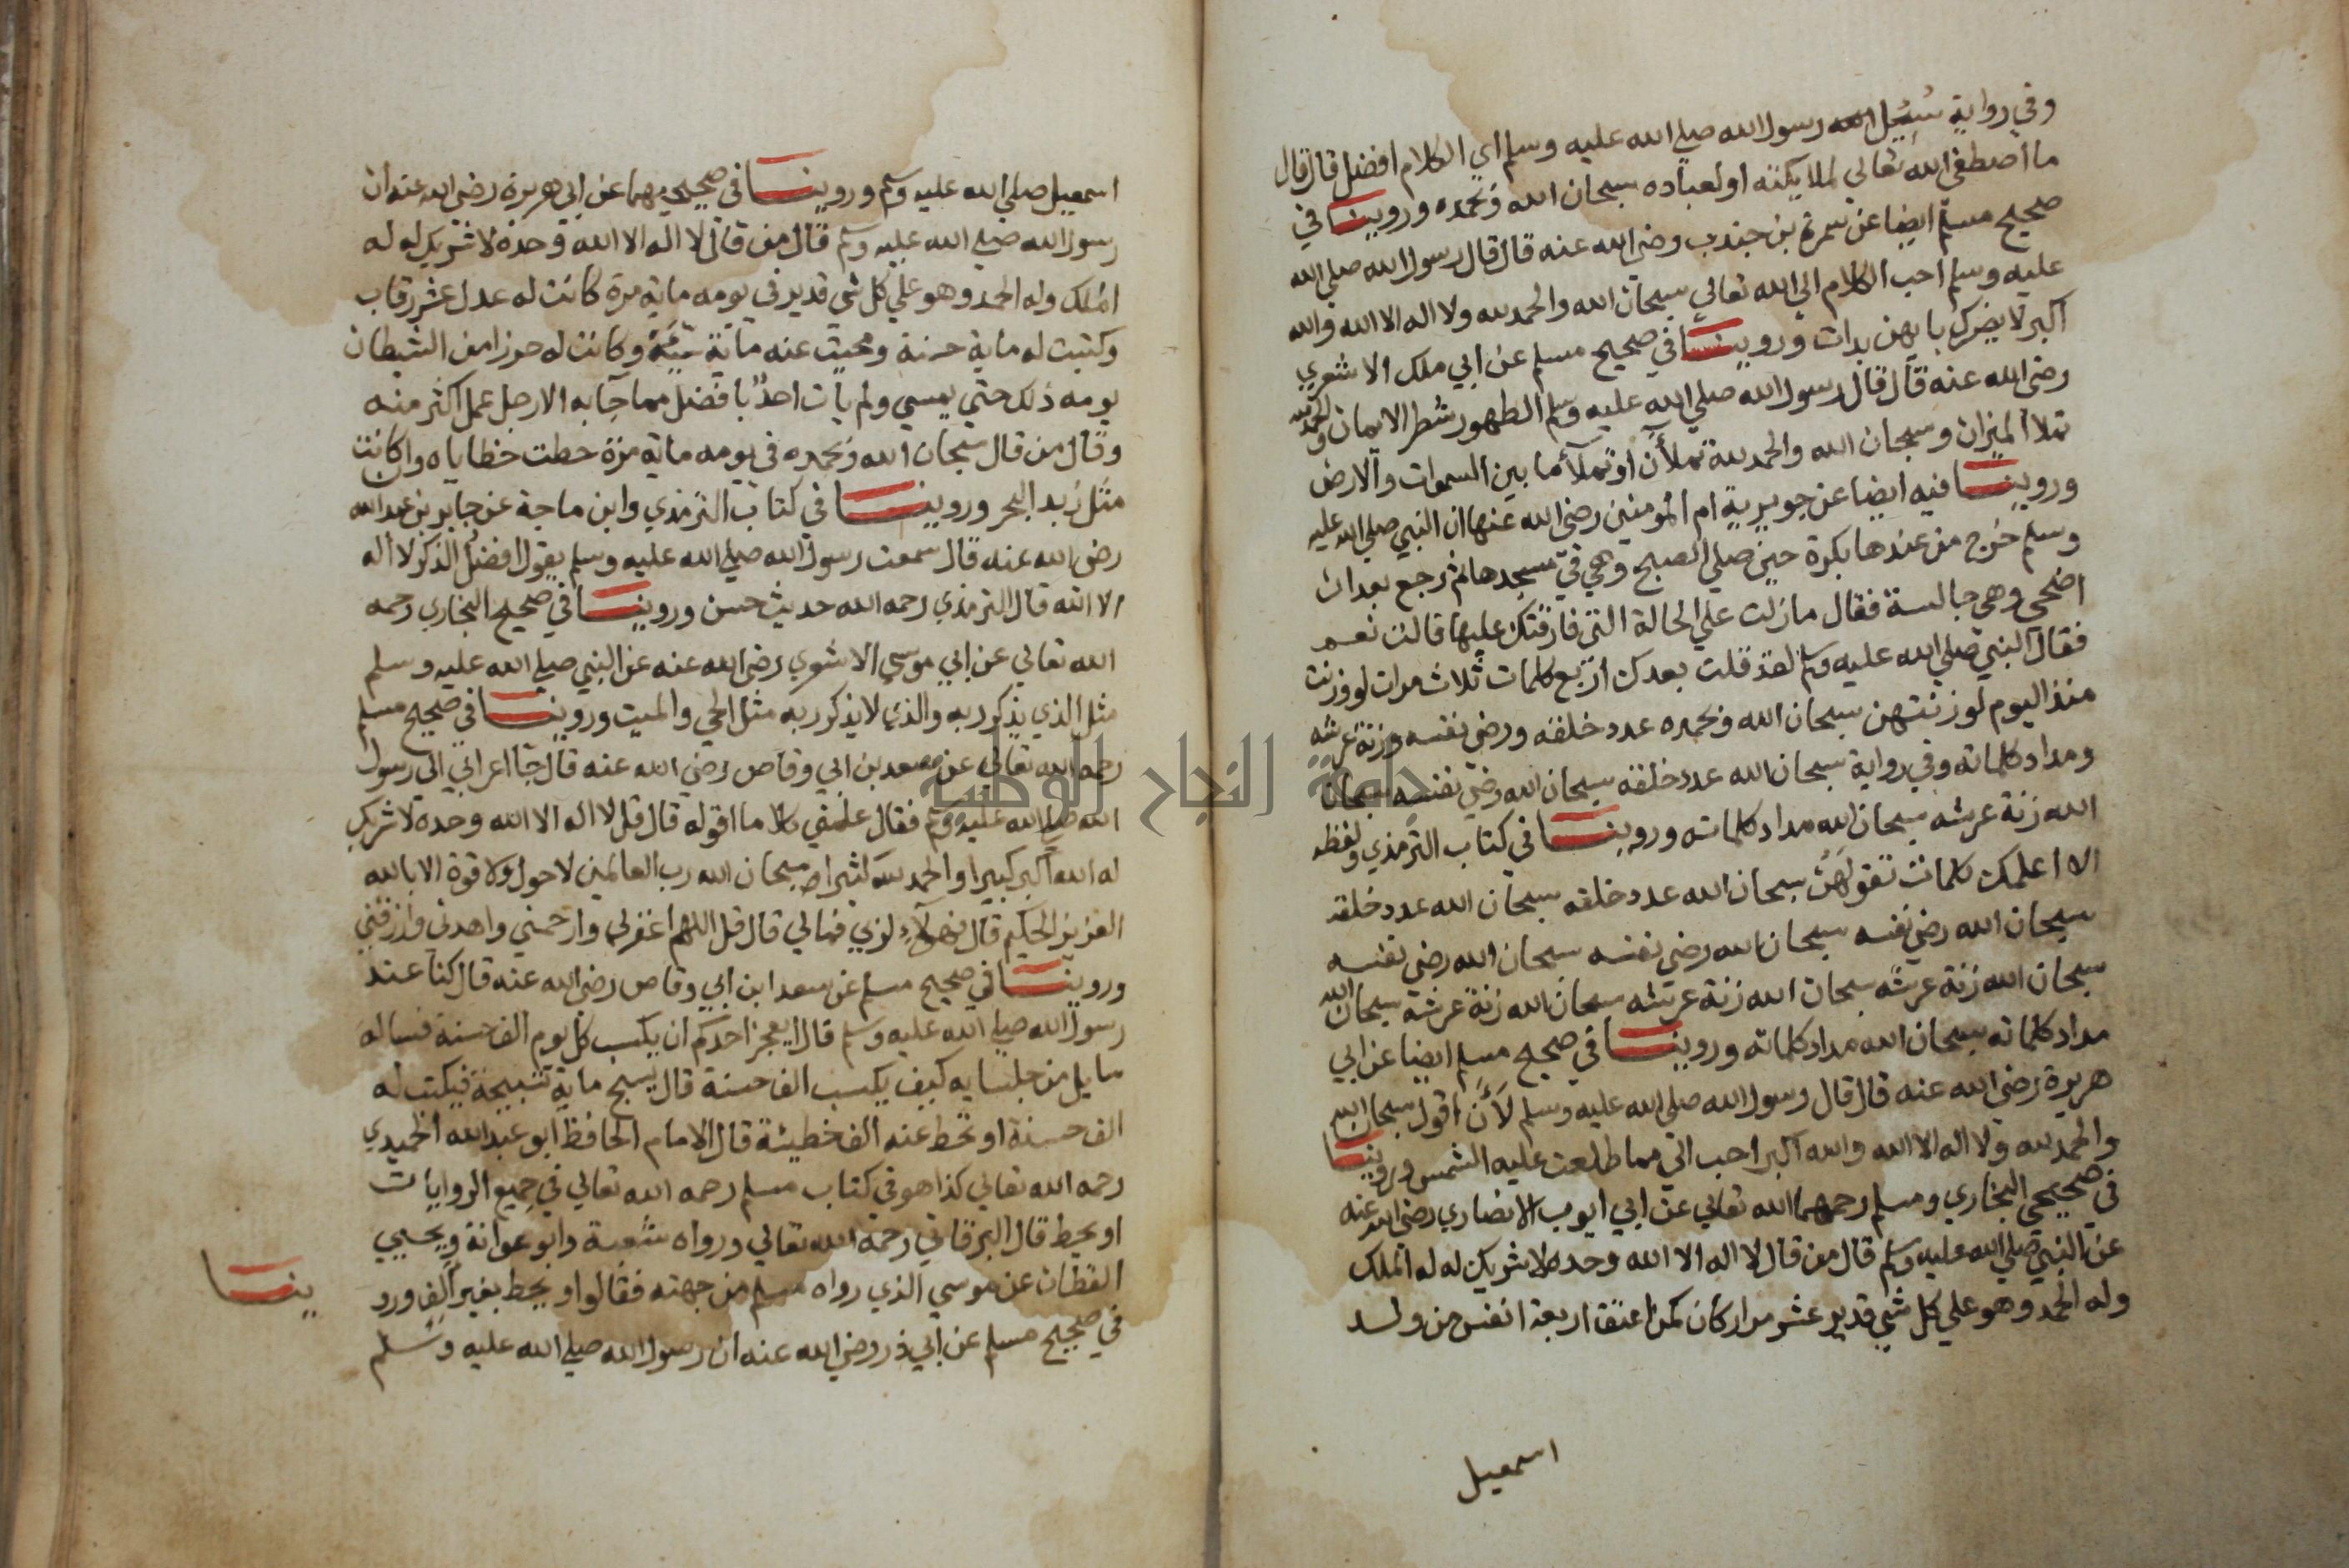 وفي رواية سُئِيل رسول الله صلي الله عليه وسلم اي الكلام افضل قال قال
ما اصطفي الله تعالي لملايكته او لعباده سبحان الله وبحمده وروينا في
صحيح مسلم ايضا عن سمرة بن جندب رضي الله عنه قال قال رسول الله صلي الله
عليه وسلم احب الكلام الي الله تعالي سبحان الله والحمد لله ولا اله الا الله والله
اكبر لا يضرك بايهن بدات وروينا في صحيح مسلم عن ابي ملك الاشعري
رضي الله عنه قال قال رسول الله صلي الله عليه وسلم الطهور شطر الايمان والحمد لله
تملا الميزان وسبحان الله والحمد لله تملآن او تملأ ما بين السموات والارض
وروينا فيه ايضا عن جويرية ام المومنين رضي الله عنها ان النبي صلي الله عليه
وسلم خرج من عندها بكرة حين صلي الصبح وهي في مسجدها ثم رجع بعد ان
اضحي وهي جالسة فقال مازلت علي الحالة التي فارقتك عليها قالت نعم
فقال النبي صلي الله عليه وسلم لقد قلت بعدك اربع كلمات ثلاث مرات لو وزنت
منذ اليوم لوزنتهن سبحان الله وبحمده عدد خلقه ورضي نفسه وزنة عرشه
ومداد كلماته وفي رواية سبحان الله عدد خلقه سبحان الله رضي نفسه سبحان
الله زنة عرشه سبحان الله مداد كلماته وروينا في كتاب الترمذي ولفظه
الا اعلمك كلمات تقولهن سبحان الله عدد خلقه سبحان الله عدد خلقه
سبحان الله رضي نفسه سبحان الله رضي نفسه سبحان الله رضي نفسه
سبحان الله زنة عرشه سبحان الله زنة عرشه سبحان الله زنة عرشه سبحان الله
مداد كلماته سبحان الله مداد كلماته وروينا في صحيح مسلم ايضا عن ابي
هريرة رضي الله عنه قال قال رسول الله صلي الله عليه وسلم لأن اقول سبحان الله
والحمد لله ولا اله الا الله والله اكبر احب الي مما طلعت عليه الشمس وروينا
في صحيحي البخاري ومسلم رحمهما الله تعالي عن ابي ايوب الانصاري رضي الله عنه
عن النبي صلي الله عليه وسلم قال من قال لا اله الا الله وحده لا شريك له له الملك
وله الحمد وهو علي كل شي قدير عشر مرار كان كمن اعتق اربعة انفس من ولد
اسمعيل
اسمعيل صلي الله عليه وسلم وروينا في صحيحيهما عن ابي هريرة رضي الله عنه ان
رسول الله صلي الله عليه وسلم قال من قال لا اله الا الله وحده لا شريك له له
الملك وله الحمد وهو علي كل شي قدير في يومه ماية مرة كانت له عدل عشر رقاب
وكتبت له ماية حسنة ومحيت عنه ماية سيئة وكانت له حرزا من الشيطان
يومه ذلك حتي يمسي ولم يات احدٌ بافضل مما جآ به الا رجل عمل اكثر منه
وقال من قال سبحان الله وبحمده في يومه ماية مرة حطت خطاياه وان كانت
مثل زبد البحر وروينا في كتاب الترمذي وابن ماجة عن جابر بن عبد الله
رضي الله عنه قال سمعت رسول الله صلي الله عليه وسلم يقول افضل الذكر لا اله
الا الله قال الترمذي رحمه الله حديث حسن وروينا في صحيح البخاري رحمه
الله تعالي عن ابي موسي الاشعري رضي الله عنه عن النبي صلي الله عليه وسلم
مثل الذي يذكر ربه والذي لا يذكر ربه مثل الحي والميت وروينا في صحيح مسلم
رحمه الله تعالي عن سعد بن ابي وقاص رضي الله عنه قال جآ اعرابي الي رسول
الله صلي الله عليه وسلم فقال علمني كلاما اقوله قال قل لا اله الا الله وحده لا شريك
له الله اكبر كبيرا والحمد لله كثيرا سبحان الله رب العالمين لا حول ولا قوة الا بالله
العزيز الحكيم قال فهولآء لربي فما لي قال قل اللهم اغفر لي وارحمني واهدني وارزقني
وروينا في صحيح مسلم عن سعد ابن ابي وقاص رضي الله عنه قال كنا عند
رسول الله صلي الله عليه وسلم قال ايعجز احدكم ان يكسب كل يوم الف حسنة فساله
سايل من جلسايه كيف يكسب الف حسنة قال يسبح ماية تسبيحة فيكتب له
الف حسنة او تحط عنه الف خطيئة قال الامام الحافظ ابو عبد الله الحميدي
رحمه الله تعالي كذا هو في كتاب مسلم رحمه الله تعالي في جميع الروايات
او يحط قال البرقاني رحمه الله تعالي ورواه شعبة وابو عوانة ويحيي
القطان عن موسي الذي رواه مسلم من جهته فقالوا ويحط بغير الف ورو
ينا
في صحيح مسلم عن ابي ذر رضي الله عنه ان رسول الله صلي الله عليه وسلم
جامعة النجاح الوطنية